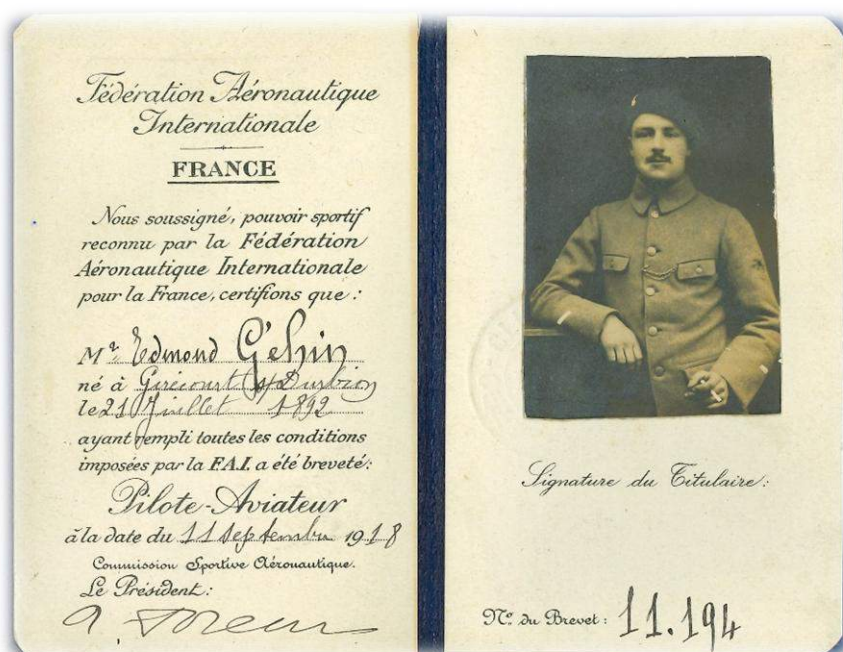 Fédération Aéronautique
Internationale
FRANCE
Nous soussigné, pouvoir sportif
reconnu par la Fédération
Aéronautique Internationale
pour la France, certifions que :
Mr. Edmond Géhin
né à Girecourt s/ Durbion
le 21 Juillet 1892
ayant rempli toutes les conditions
imposées par la F.A.I. a été breveté:
Pilote-Aviateur
à la date du 11 septembre 1918
Commission Sportive Aéronautique.
Le Président:
Signature du Titulaire:
No. du Brevet: 11.194